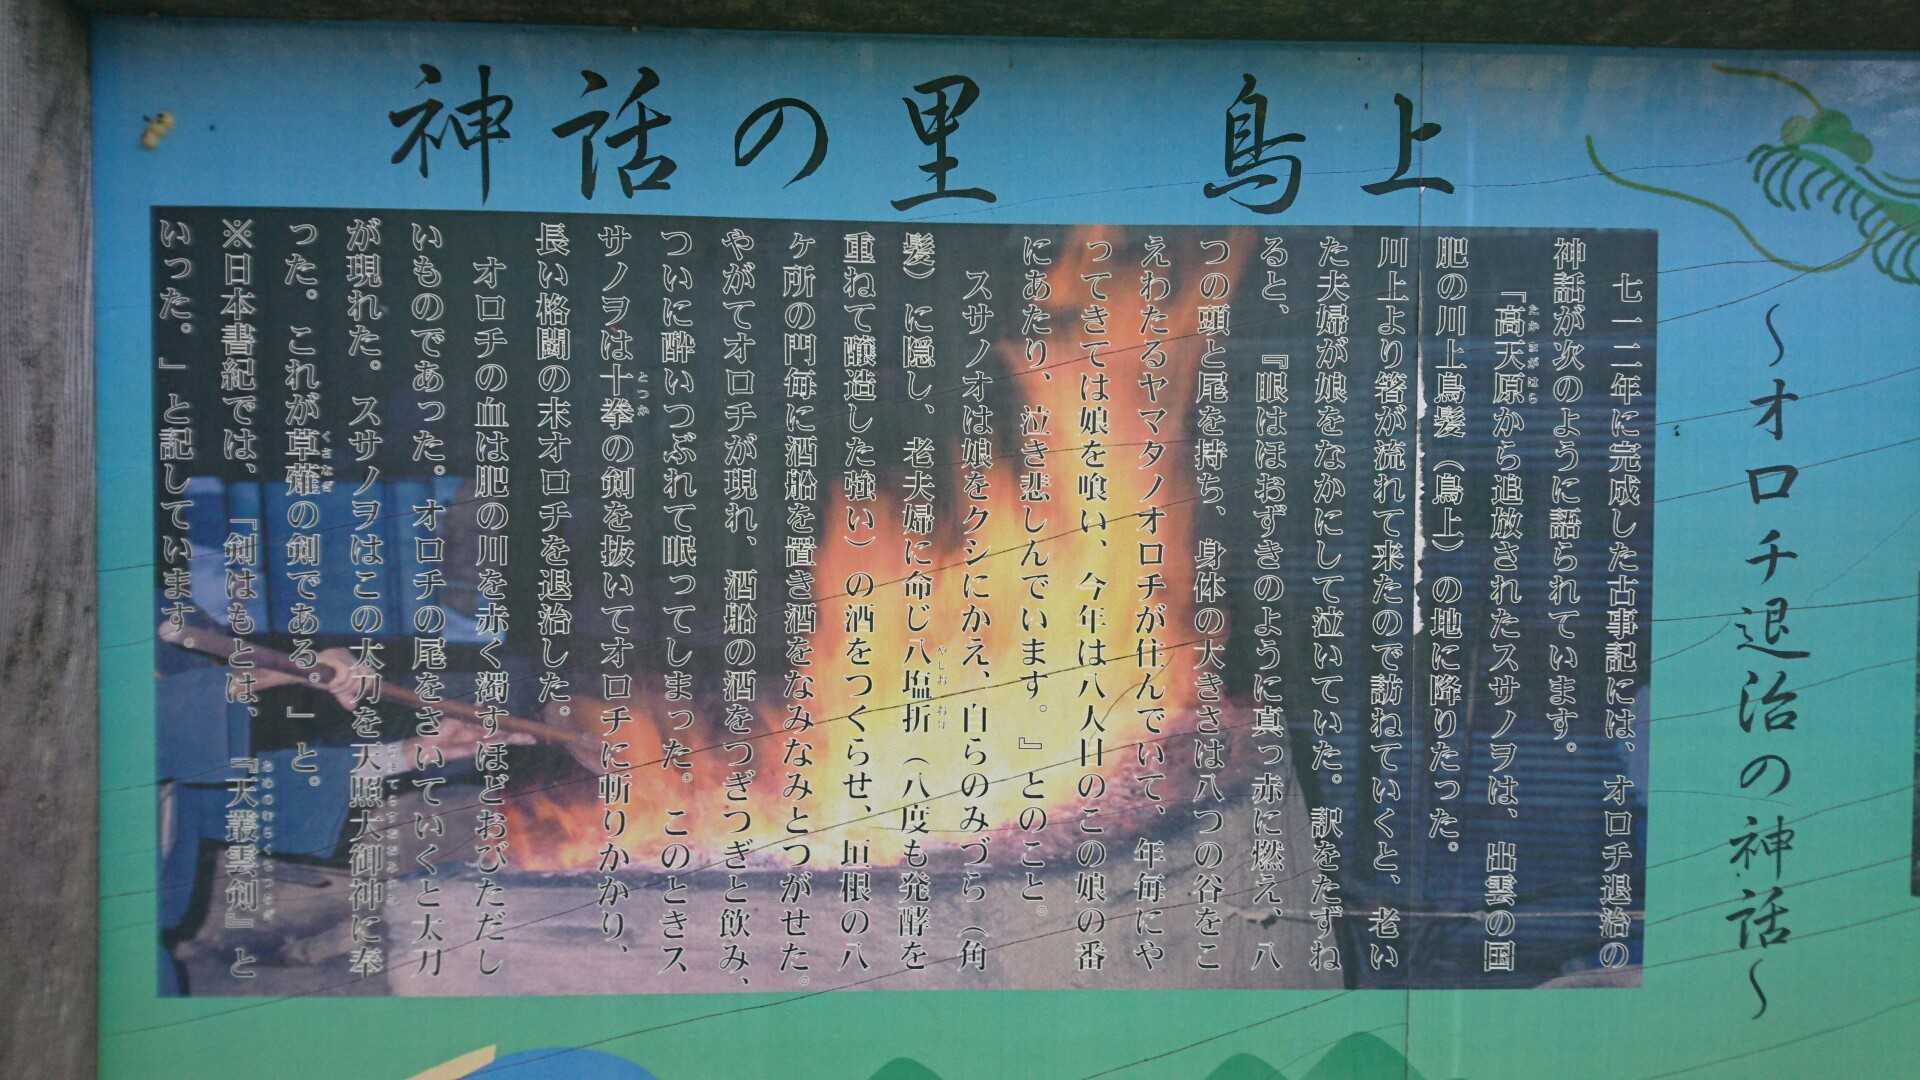 神話の里 鳥上
～オロチ退治の神話～
七一二年に完成した古事記には、オロチ退治の
神話が次のように語られています。
「高天原から追放されたスサノヲは、出雲の国
肥の川上鳥髪（鳥上）の地に降りたった。
川上より箸が流れて来たので訪ねていくと、老い
た夫婦が娘をなかにして泣いていた。訳をたずね
ると、『眼はほおずきのように真っ赤に燃え、八
つの頭と尾を持ち、身体の大きさは八つの谷をこ
えわたるヤマタノオロチが住んでいて、年毎にや
ってきては娘を喰い、今年は八人目のこの娘の番
にあたり、泣き悲しんでいます。』とのこと。
スサノオは娘をクシにかえ、自らのみづら（角
髪）に隠し、老夫婦に命じ八塩折（八度も発酵を
重ねて醸造した強い）の酒をつくらせ、垣根の八
ヶ所の門毎に酒船を置き酒をなみなみとつがせた。
やがてオロチが現れ、酒船の酒をつぎつぎと飲み、
ついに酔いつぶれて眠ってしまった。このときス
サノヲは十拳の剣を抜いてオロチに斬りかかり、
長い格闘の末オロチを退治した。
オロチの血は肥の川を赤く濁すほどおびただし
いものであった。オロチの尾をさいていくと太刀
が現れた。スサノヲはこの太刀を天照大御神に奉
った。これが草薙の剣である。」と。
※日本書紀では、「剣はもとは、『天叢雲剣』と
いった。」と記しています。